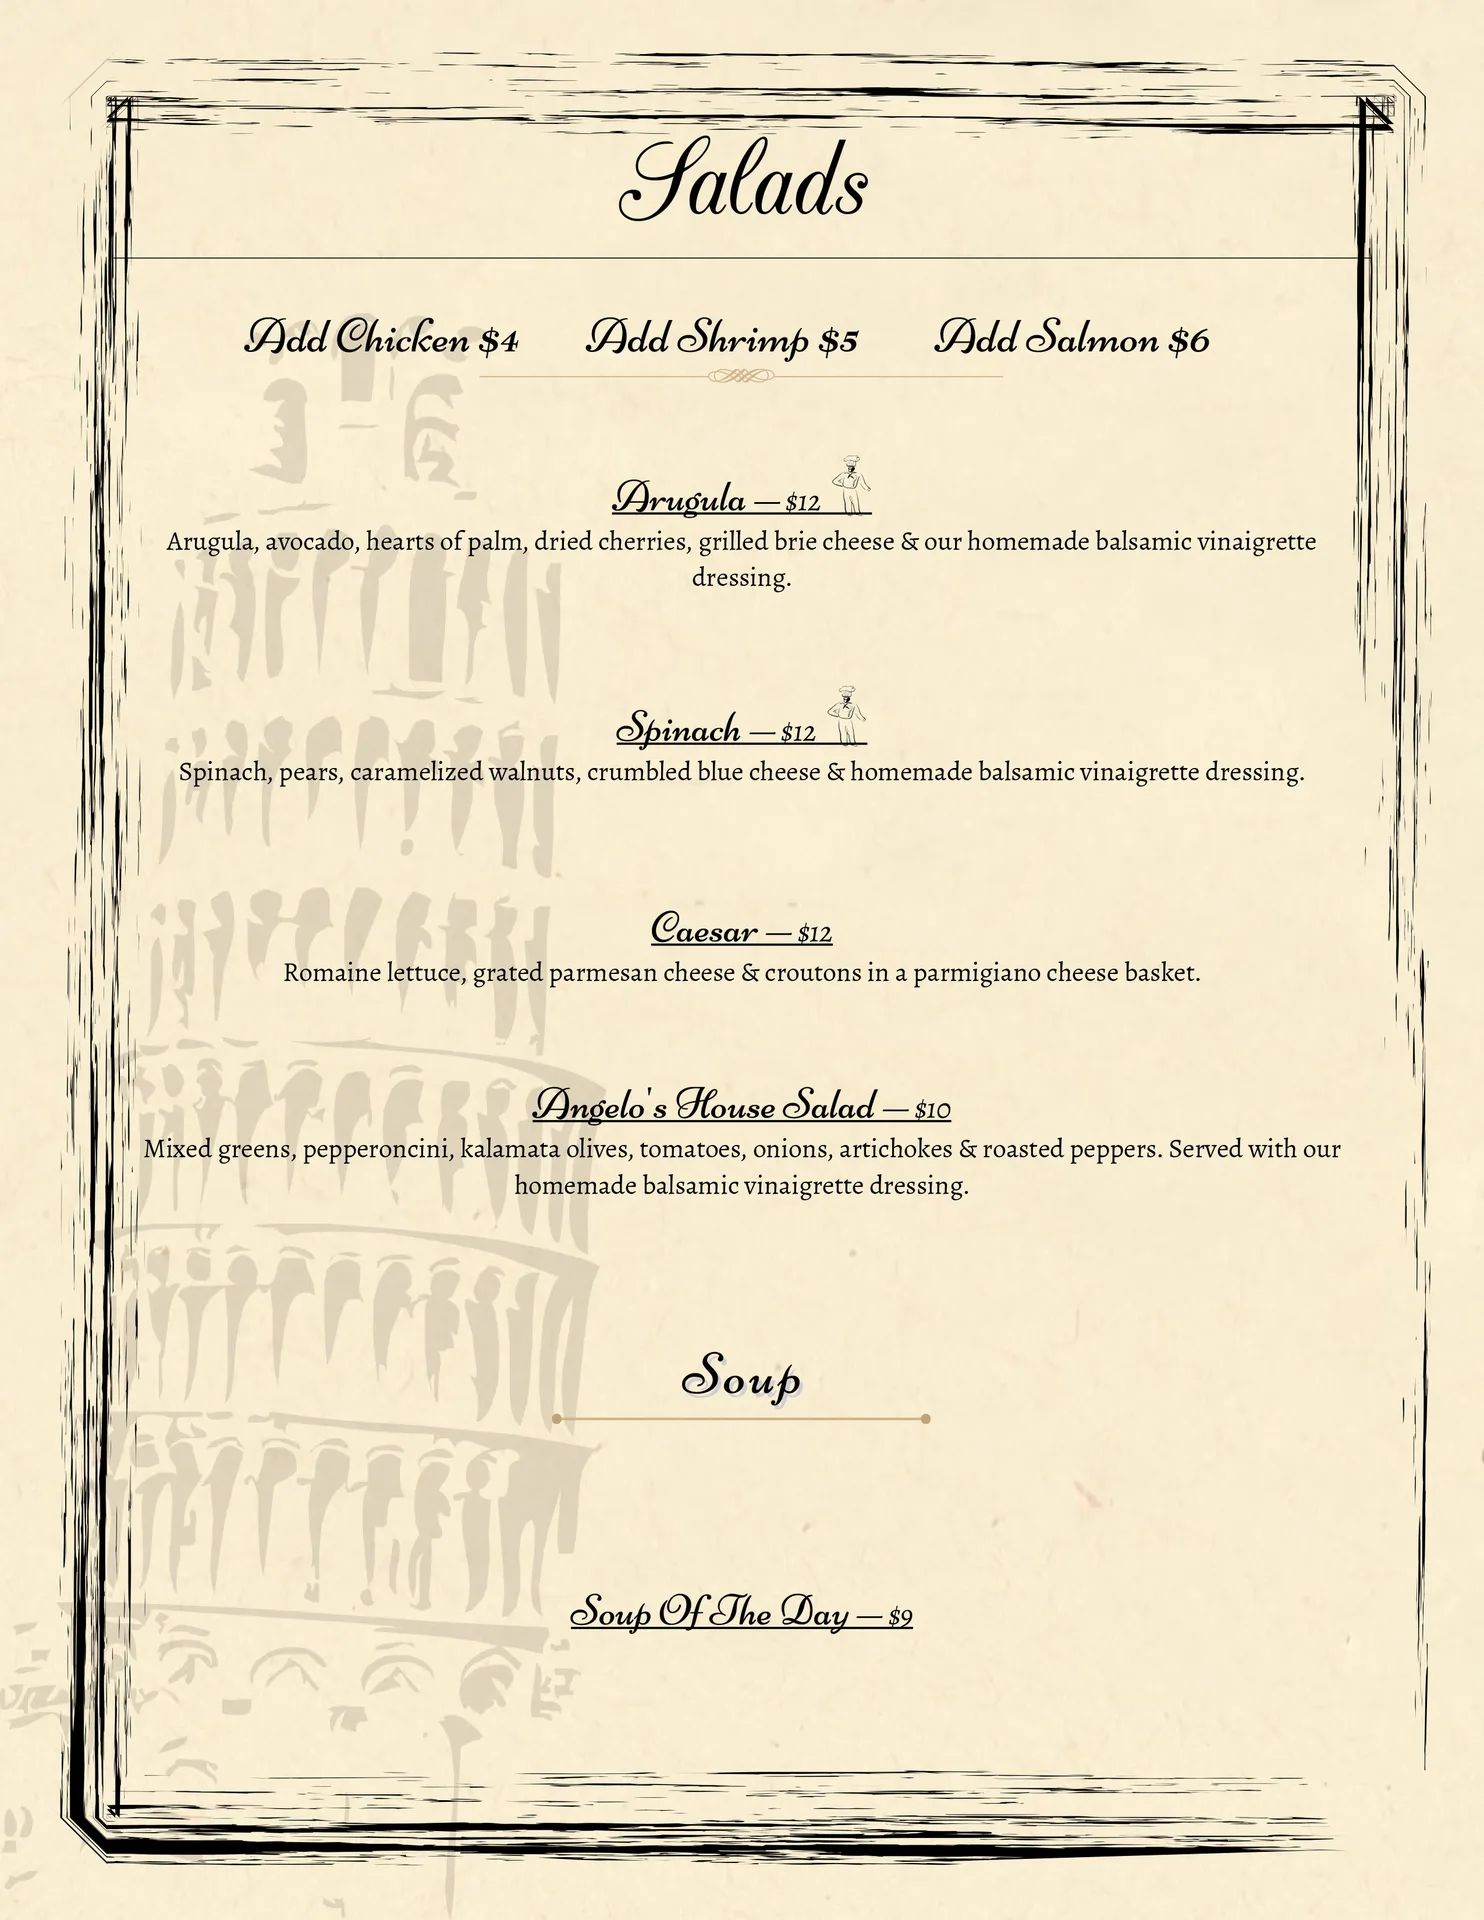 Salads
Add Chicken $4 Add Shrimp $5 Add Salmon $6
Arugula — $12
Arugula, avocado, hearts of palm, dried cherries, grilled brie cheese & our homemade balsamic vinaigrette
dressing.
Spinach — $12
Spinach, pears, caramelized walnuts, crumbled blue cheese & homemade balsamic vinaigrette dressing.
Caesar — $12
Romaine lettuce, grated parmesan cheese & croutons in a parmigiano cheese basket.
Angelo's House Salad — $10
Mixed greens, pepperoncini, kalamata olives, tomatoes, onions, artichokes & roasted peppers. Served with our
homemade balsamic vinaigrette dressing.
Soup
Soup Of The Day — $9